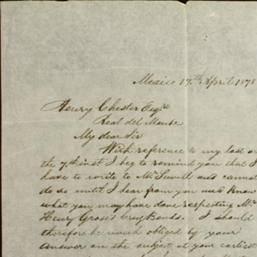 Mexico 17th April 1878
Henry Chester Esqre
Real del Monte
My dear Sir
With reference to my last of
the 7th inst I beg to remind you that I
have to write to and cannot
do so until I hear from you and know
what you may have done respecting Mr
Henry Grose's Bonds. I should
therefore be much obliged by your
answer on the subject at your earliest